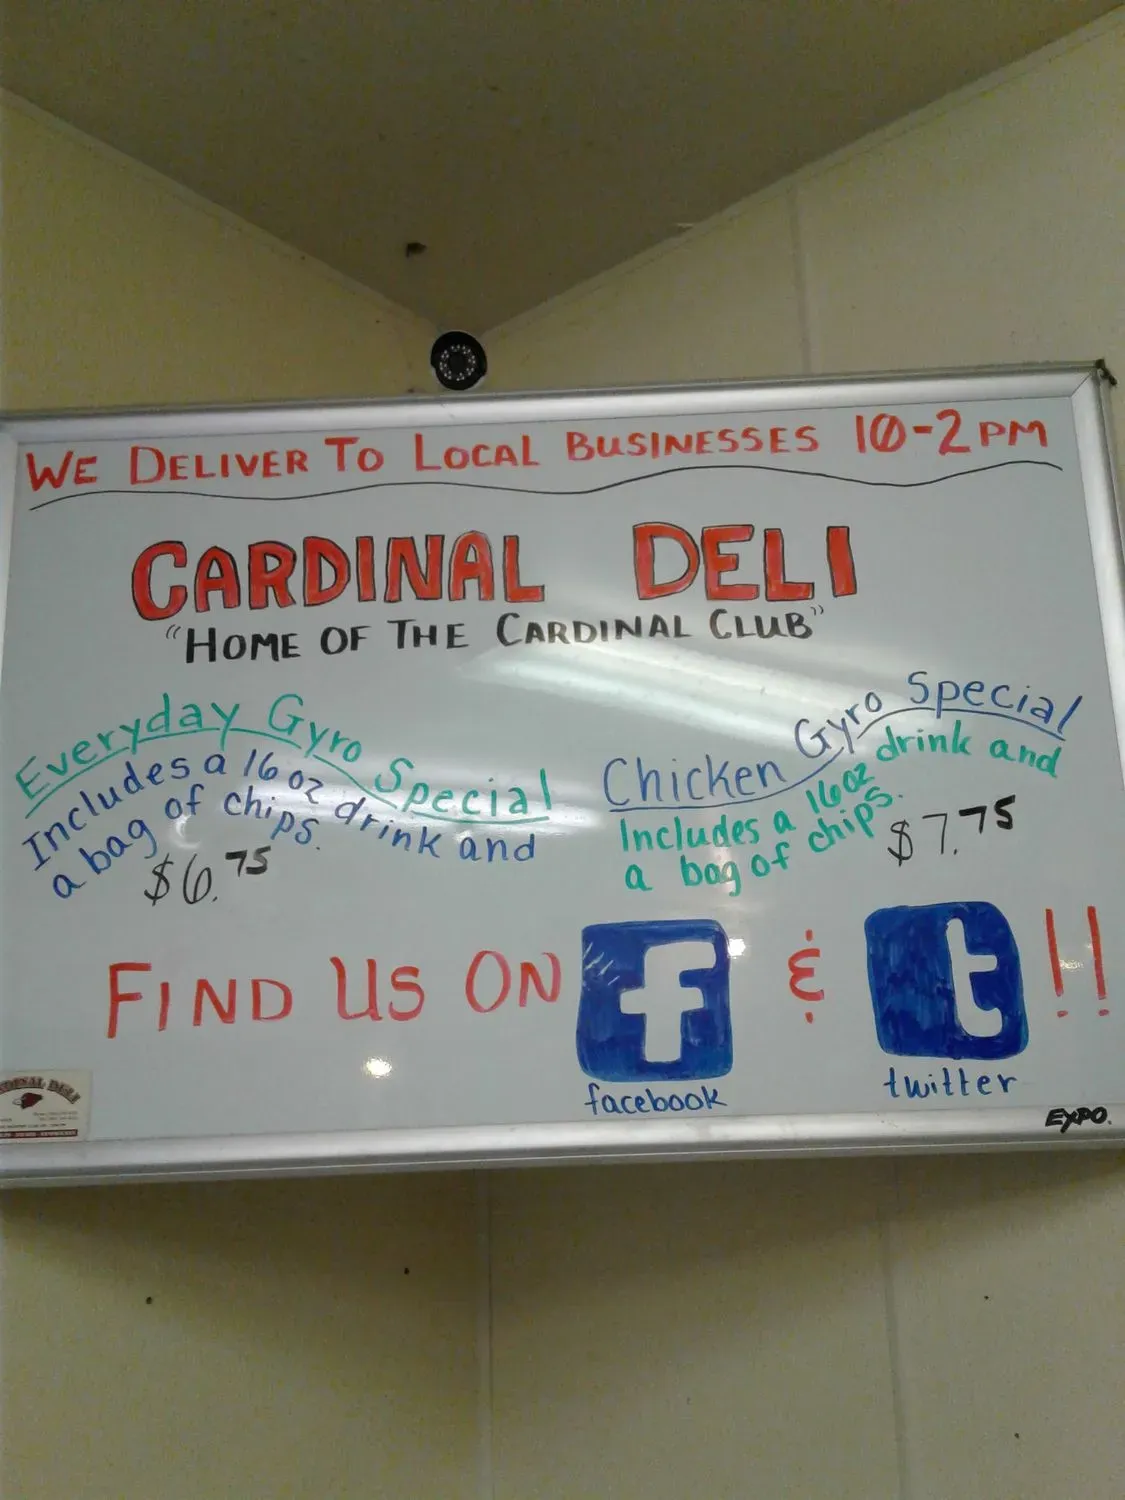 WE DELIVER TO LOCAL BUSINESSES 10-2 PM
CARDINAL DELI
"HOME OF THE CARDINAL CLUB"
Everyday Gyro Special
Includes a 16 oz drink and
a bag of chips.
$6.75
Chicken Gyro Special
Includes a 16oz drink and
a bag of chips.
$7.75
FIND US ON f & t !!
facebook
twitter
DELI
EXPO.